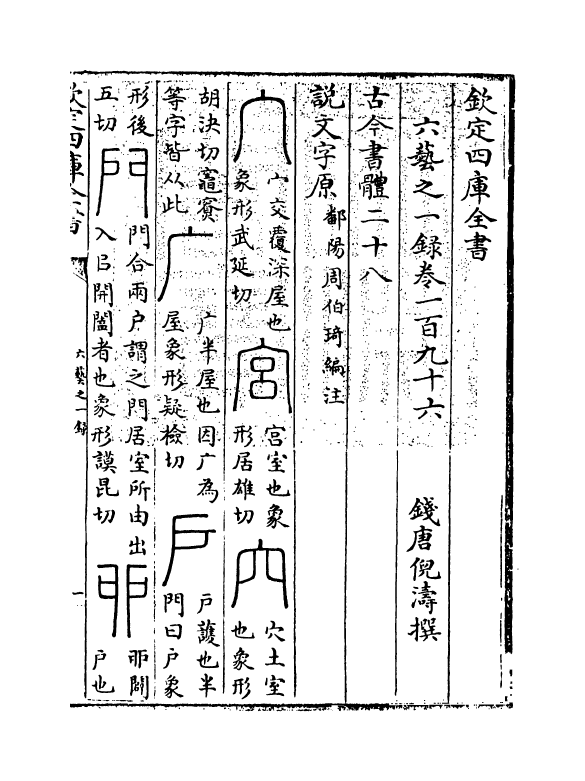 欽定四庫全書
六藝之一錄卷一百九十六 錢唐倪濤撰
古今書體二十八
說文字原 鄱陽周伯琦編注
宀 宀交覆深屋也象形武延切 宮 宮室也象形居雄切 穴 穴土室也象形
胡決切竈賓等字皆从此 广 广半屋也因广為屋象形疑檢切 戶 戶護也半門曰戶象
形後五切 門 門合兩戶謂之門居室所由出入㠯開闔者也象形謨昆切 戼 戼闢戶也
欽定四庫全書 六藝之一錄 一